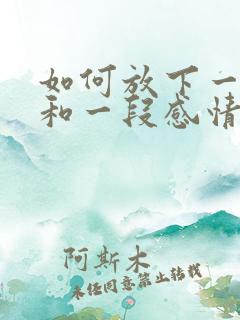 如何放下一
和一段感情
阿斯木
未经同意禁止转载